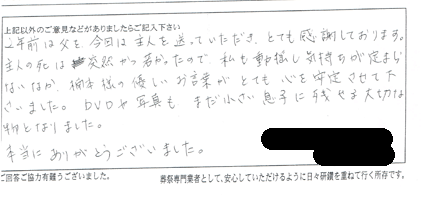 上記以外のご意見などがありましたらご記入下さい
2年前は父を、今回は主人を送っていただき、とても感謝しております。
主人の死は突然で若かったので、私も動揺し気持ちが定まら
ないなか、楠本様の優しいお言葉がとても心を安定させて下
さいました。DVDや写真も まだ小さい息子に残せる大切な
物となりました。
本当にありがとうございました。
ご回答ご協力有難うございました。
葬祭専門業者として、安心していただけるように日々研鑽を重ねて行く所存です。